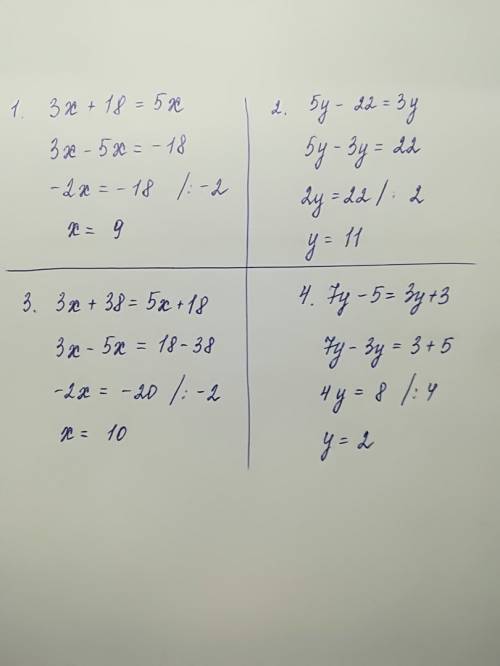 1. 3x + 18 = 5x
3x - 5x = -18
-2x = -18 /: -2
x = 9
2. 5y - 22 = 3y
5y - 3y = 22
2y = 22 /: 2
y = 11
3. 3x + 38 = 5x + 18
3x - 5x = 18 - 38
-2x = -20 /: -2
x = 10
4. 7y - 5 = 3y + 3
7y - 3y = 3 + 5
4y = 8 /: 4
y = 2